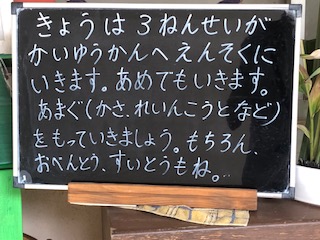 きょうは３ねんせいが
かいゆうかんへえんそくに
いきます。あめでもいきます。
あまぐ(かさ、れいんこうとなど)
をもっていきましょう。もちろん、
おべんとう、すいとうもね。